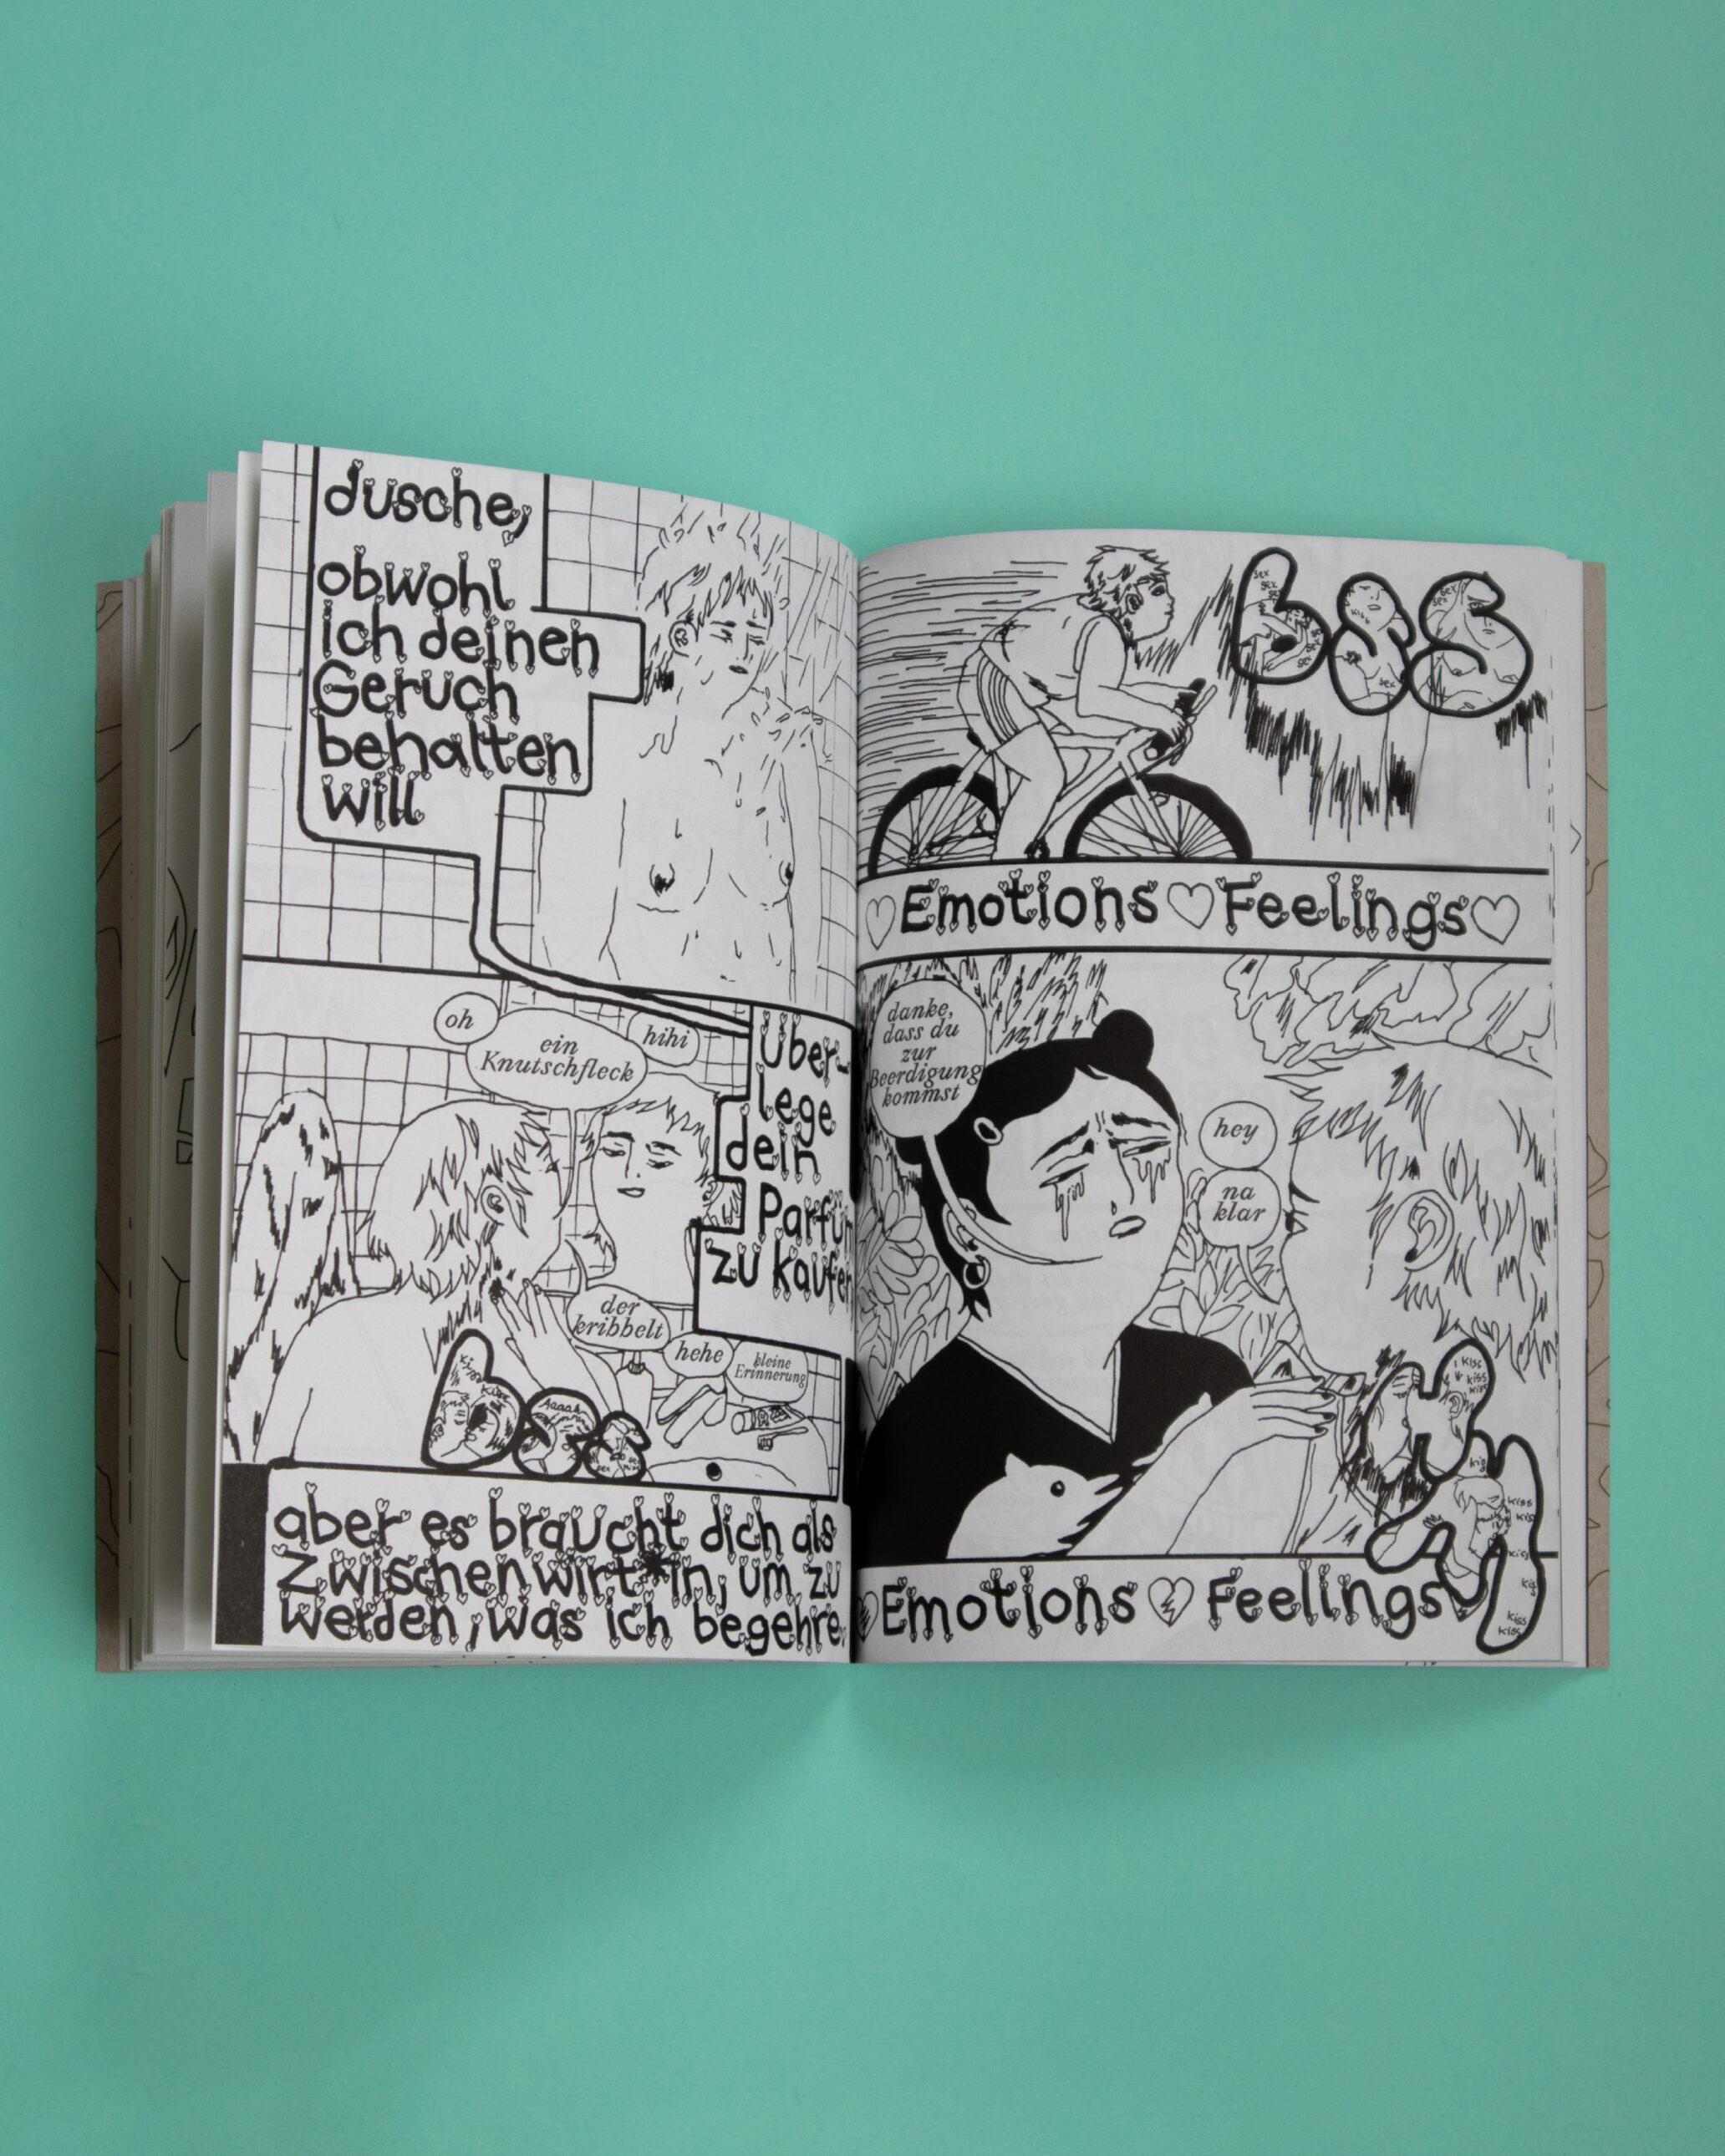 dusche,
obwohl
ich deinen
Geruch
behalten
will
oh
ein
Knutschfleck
hihi
Über-
lege
dein
Parfüm
zu kaufen
der
kribbelt
hehe
kleine
Erinnerung
kiss
kiss
Aaaah
aber es braucht dich als
Zwischenwirt*in, um zu
werden, was ich begehre.
bss
sex
sex
kiss
sex
sex
sex
Emotions Feelings
danke,
dass du
zur
Beerdigung
kommst
hey
na
klar
kiss
kiss
kiss
kiss
kiss
kiss
kiss
kiss
kiss
Emotions Feelings